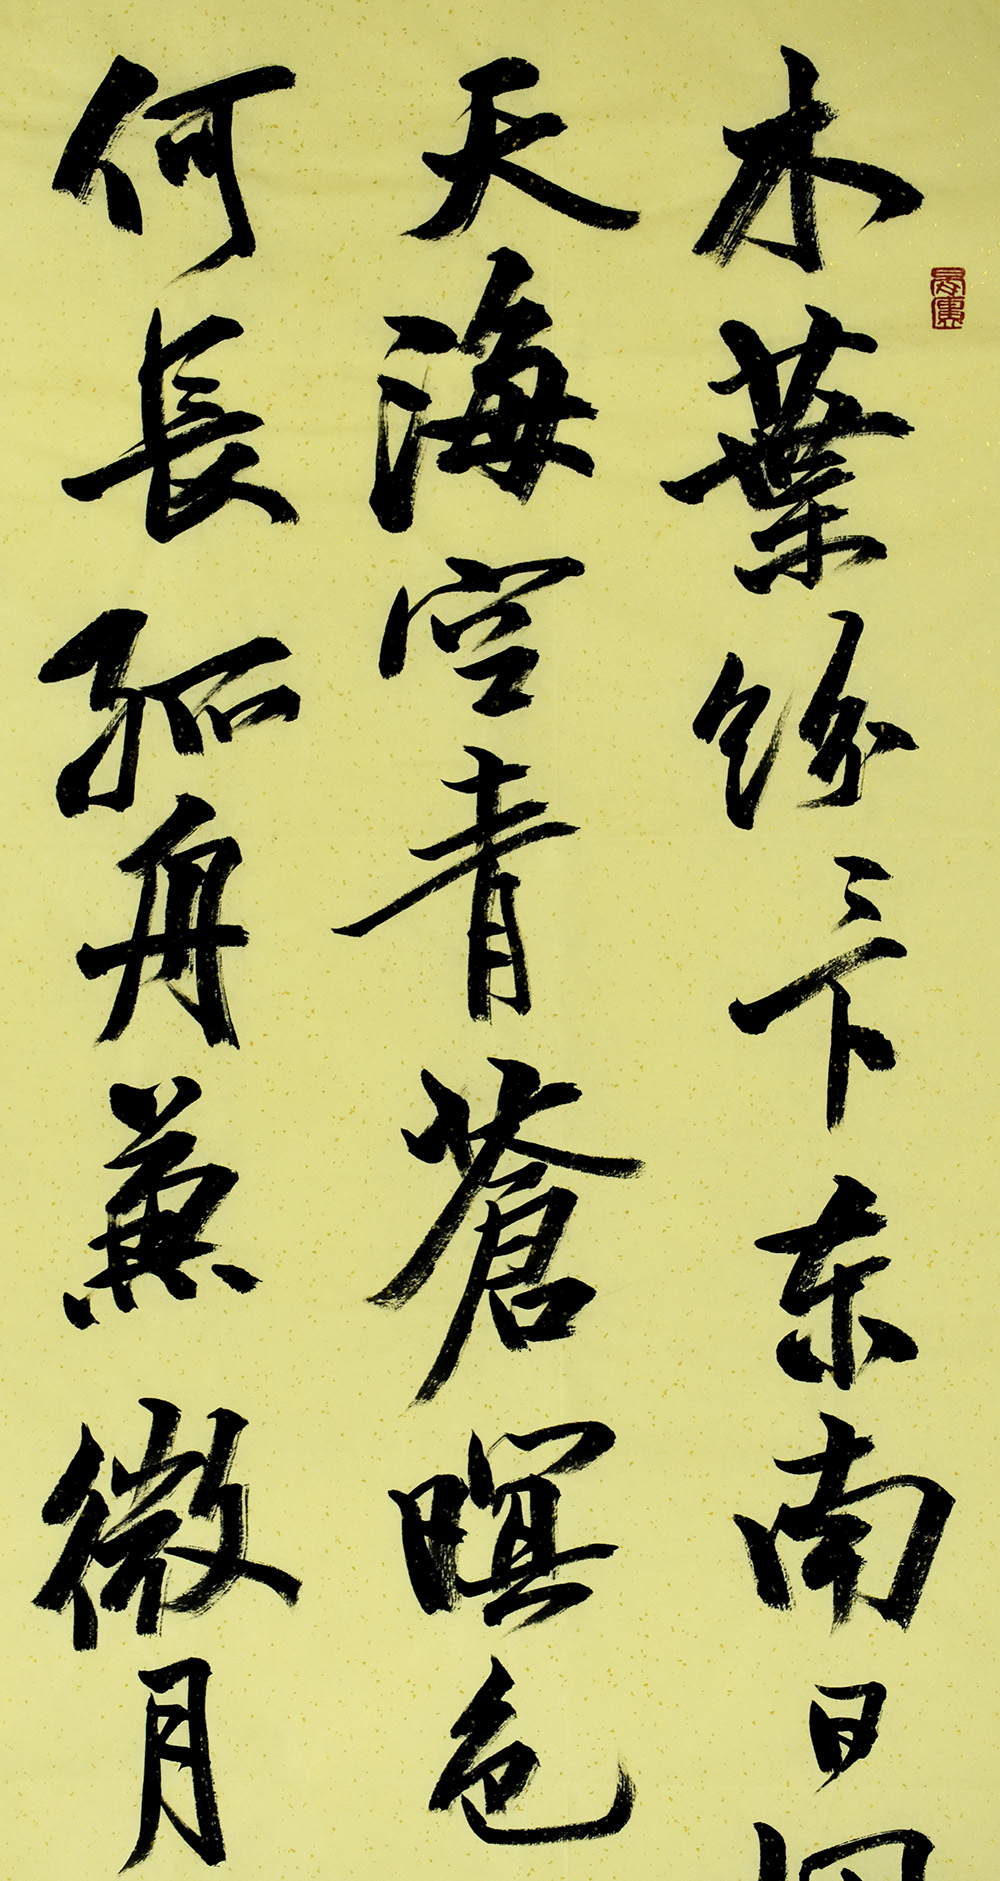 木葉紛〻下东南日
天海空青蒼暝色
何長孤舟兼微月